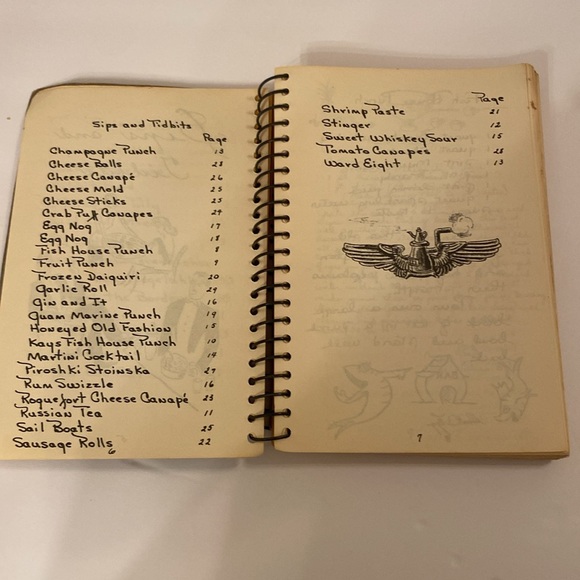 Sips and Tidbits
Page
Champagne Punch 13
Cheese Balls 23
Cheese Canapé 26
Cheese Mold 25
Cheese Sticks 25
Crab Puff Canapes 24
Egg Nog 17
Egg Nog 18
Fish House Punch 8
Fruit Punch 9
Frozen Daiquiri 20
Garlic Roll 24
Gin and It 16
Guam Marine Punch 19
Honeyed Old Fashion 15
Kays Fish House Punch 10
Martini Cocktail 14
Piroshki Stoinska 27
Rum Swizzle 16
Roquefort Cheese Canapé 23
Russian Tea 11
Sail Boats 25
Sausage Rolls 22
6
Page
Shrimp Paste 21
Stinger 12
Sweet Whiskey Sour 15
Tomato Canapes 25
Ward Eight 13
7